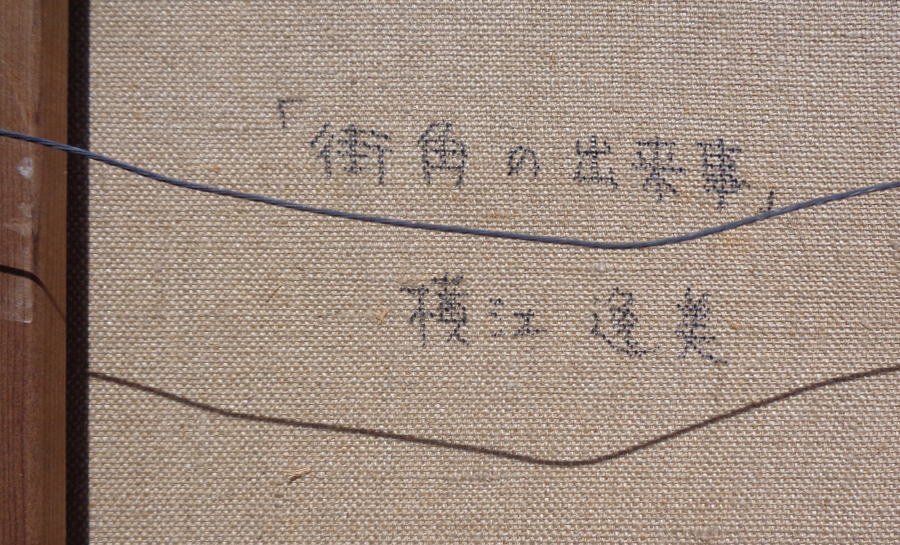 「街角の出来事」
横江逢美